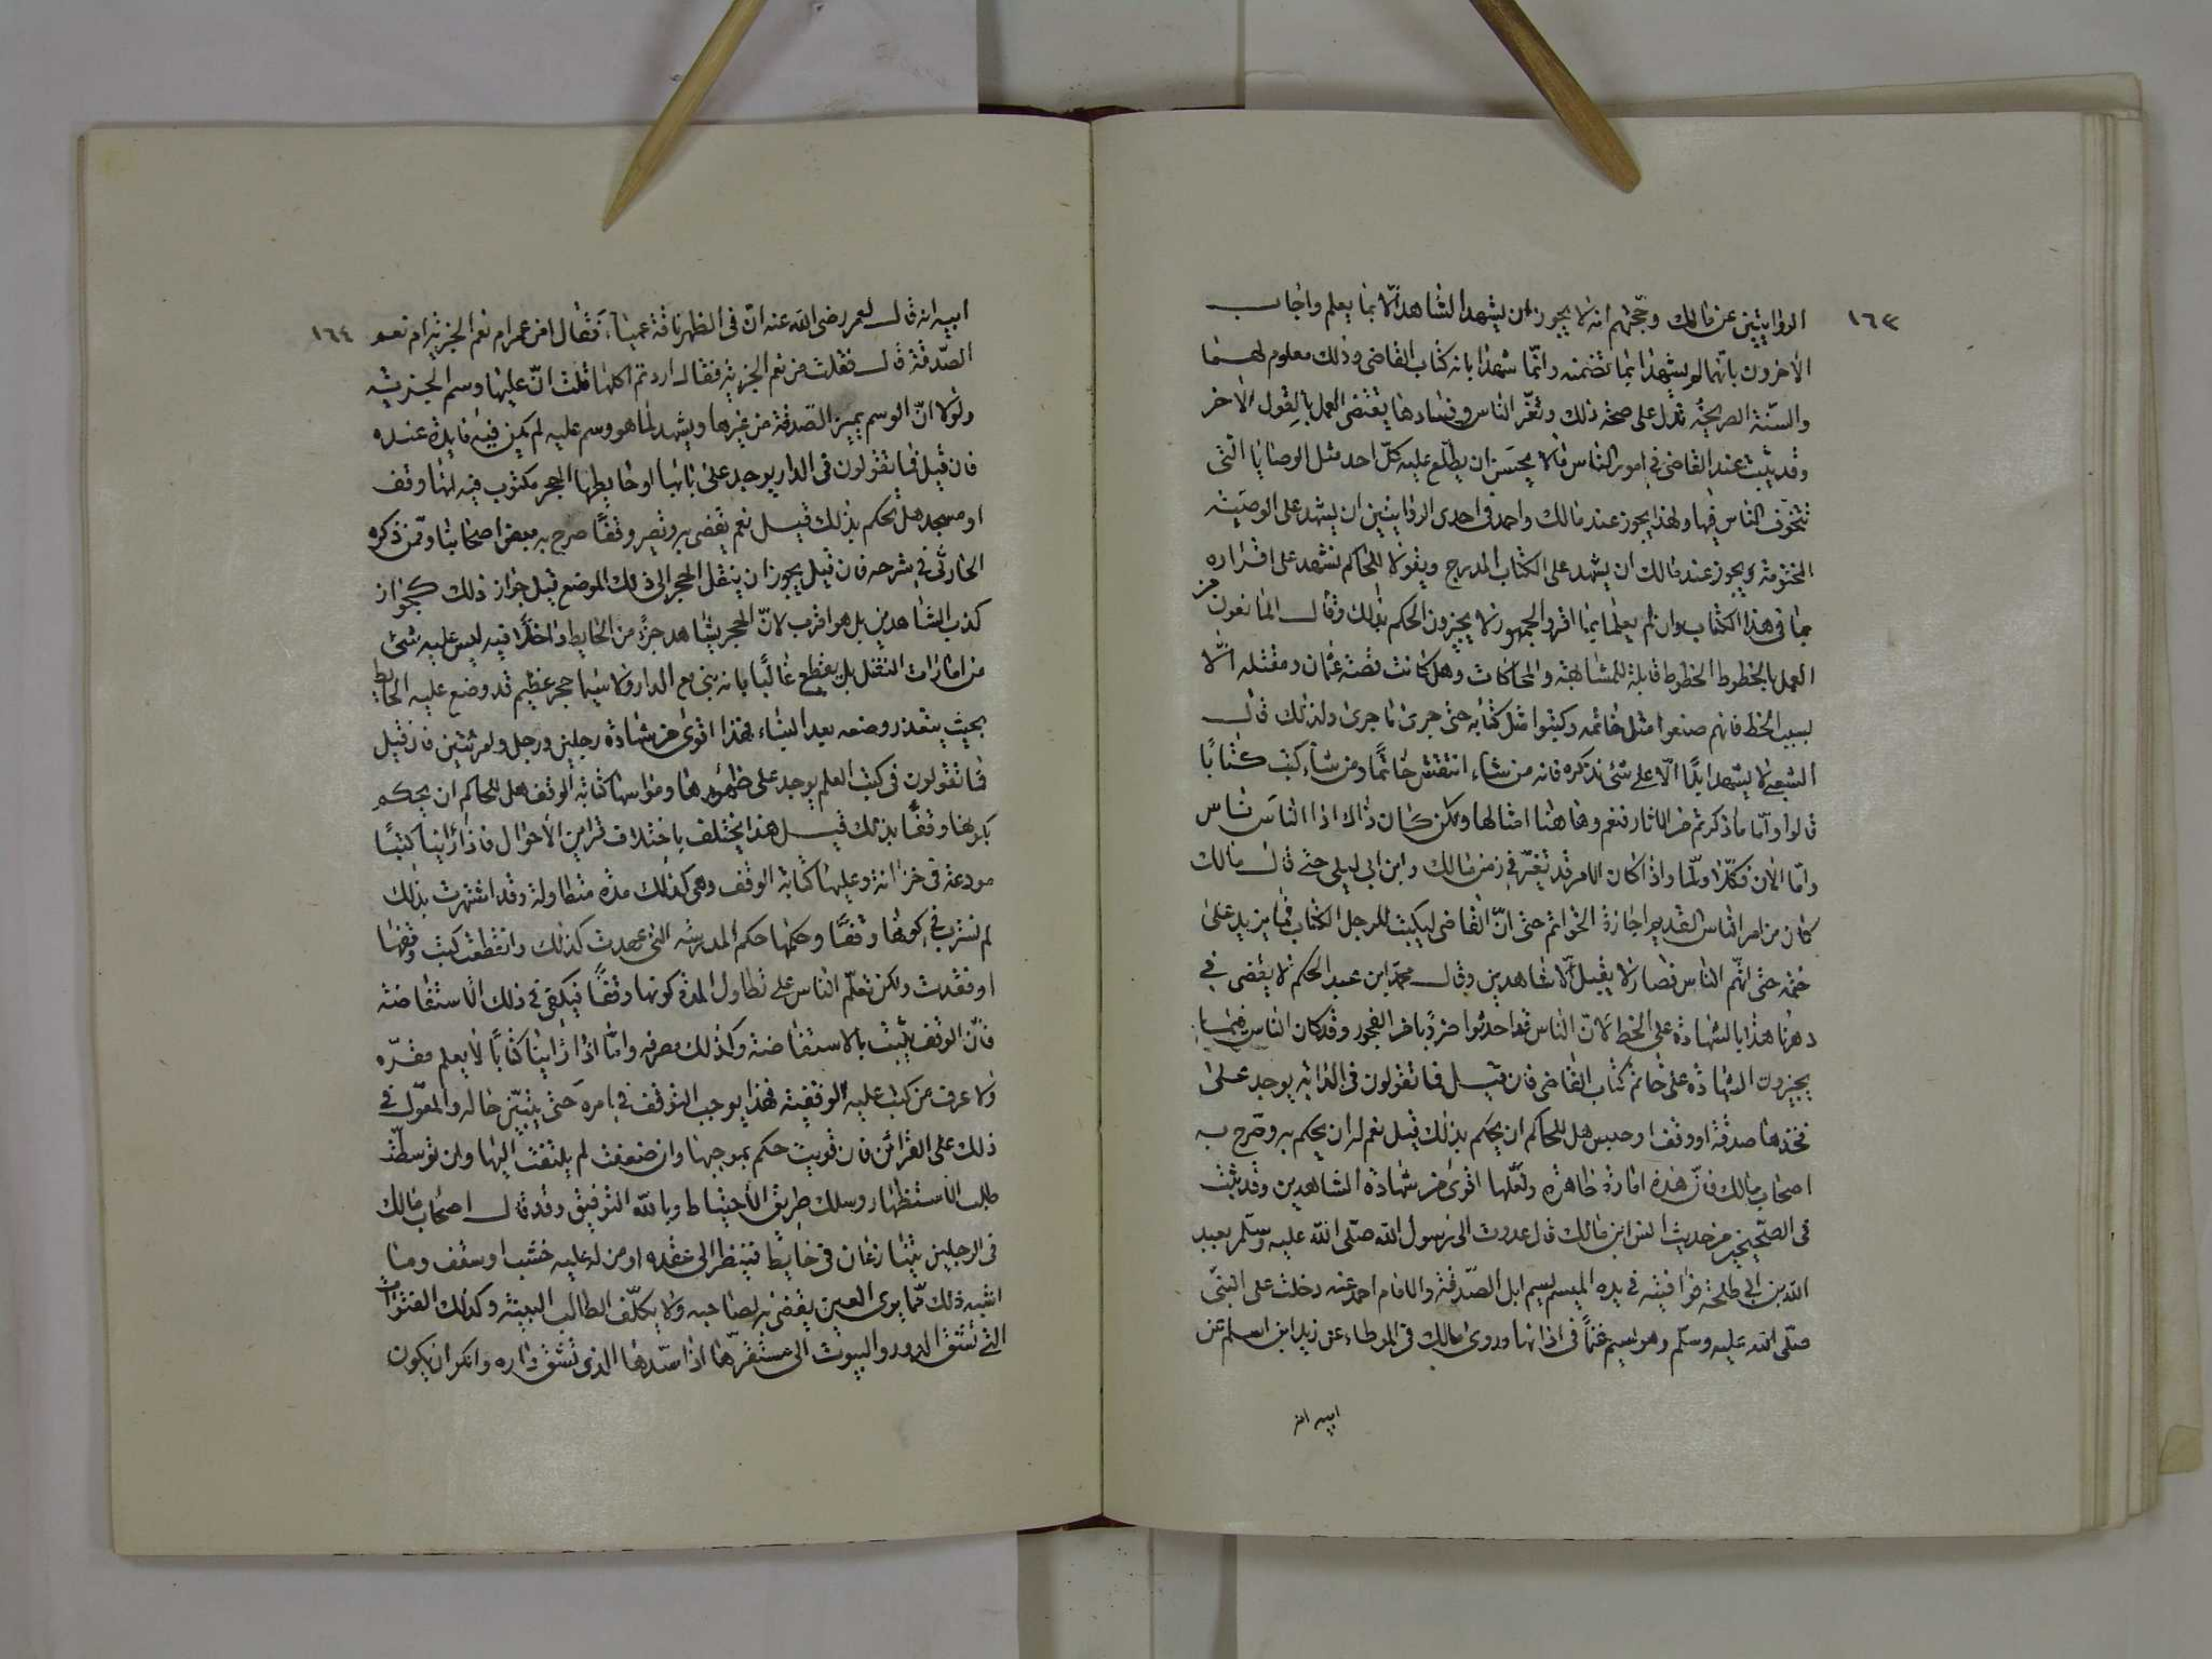 ١٦٣
الروايتين عن مالك وحجتهم انه لا يجوز ان يشهد الشاهد الّا بما يعلم واجاب
الاخرون بانّهما لم يشهدا بما تضمنه وانّما شهدا بانه كتاب القاضى وذلك معلوم لهما
والسّنة الصريحة تدل على صحة ذلك وتغيّر الناس وفسادها يقتضى العمل بالقول الاخر
وقد يثبت عند القاضى فى امور الناس مالا يحسن ان يطّلع عليه كلّ احد مثل الوصايا التى
تتخوّف الناس فيها ولهذا يجوز عند مالك واحمد فى احدى الروايتين ان يشهد على الوصيّة
المختومة ويجوز عند مالك ان يشهد على الكتاب المدرج ويقولا للحاكم نشهد على اقراره
بما فى هذا الكتاب وان لم يعلما بما اقر والجمهور لا يجيزون الحكم بذلك وقال المانعون من
العمل بالخطوط الخطوط قابلة للمشابهة والمحاكات وهل كانت قصة عثمان ومقتله الّا
بسبب الخط فانهم صنعوا مثل خاتمه وكتبوا مثل كتابه حتى جرى ما جرى ولذلك قال
الشعبى لا يشهد ابدًا الّا على شئ تذكره فانه من شاء انتقش خاتمًا ومن شاء كتب كتابًا
قالوا وامّا ما ذكرتم من الاثار فنعم وها هنا امثالها ولكن كان ذاك اذا الناس ناس
وامّا الان فكلّا ولمّا واذا كان الامر قد تغيّر فى زمن مالك وابن ابى ليلى حتى قال مالك
كان من امر الناس القديم اجازة الخواتم حتى انّ القاضى ليكتب للرجل الكتاب فما يزيد على
ختمه حتى اتّهم الناس فصار لا يقبل الّا شاهدين وقال محمد ابن عبد الحكم لا يقضى فى
دهرنا هذا بالشهادة على الخط لانّ الناس قد احدثوا ضروبًا من الفجور وقد كان الناس فيما
يجيزون الشهادة على خاتم كتاب القاضى فان قيل فما تقولون فى الدابّة يوجد على
فخذها صدقة او وقف او حبيس هل للحاكم ان يحكم بذلك قيل نعم له ان يحكم به وصّرح به
اصحاب مالك فانّ هذه امارة ظاهرة ولعلّها اقوى من شهادة الشاهدين وقد ثبت
فى الصّحيحين من حديث انس ابن مالك قال غدوت الى رسول الله صلّى الله عليه وسلّم بعبد
الله بن ابى طلحة فوافيته فى يده الميسم يسم ابل الصّدقة وللامام احمد عنه دخلت على النبّى
صلّى الله عليه وسلّم وهو يسم غنمًا فى اذانها وروى مالك فى الموطاء عن زيد ابن اسلم عن
ابيه انه
١٦٤
ابيه انه قال لعمر رضى الله عنه انّ فى الظهر ناقة عمياء فقال امن عمر ام نعم الجزية ام نعم
الصّدقة قال فقلت من نعم الجزية فقال اردتم اكلها قلت انّ عليها وسم الجزية
ولولا انّ الوسم يميز الصّدقة من غيرها ويشهد لما هو وسم عليه لم يكن فيه فايدة عنده
فان قيل فما تقولون فى الدار يوجد على بابها او حايطها الحجر مكتوب فيه انها وقف
او مسجد هل يحكم بذلك قيل نعم يقضى به وتصير وقفًا صرح به بعض اصحابنا وممن ذكره
الحارثى فى شرحه فان قيل يجوز ان ينقل الحجر الى ذلك الموضع قيل جواز ذلك كجواز
كذب الشاهدين بل هو اقرب لانّ الحجر يشاهد جزءً من الحايط داخلًا فيه ليس عليه شئ
من امارات النقل بل يقطع غالبًا بانه بنى مع الدار ولا سيما حجر عظيم قد وضع عليه الحايط
بحيث يتعذر وضعه بعد البناء فهذا اقوى من شهادة رجلين ورجل وامرئتين فان قيل
فما تقولون فى كتب العلم يوجد على ظهورها وهوامشها كتابة الوقف هل للحاكم ان يحكم
بكونها وقفًا بذلك قيل هذا يختلف باختلاف قراين الاحوال فاذا راينا كتبًا
مودعة فى خزانة وعليها كتابة الوقف وهى كذلك مدة متطاولة وقد اشتهرت بذلك
لم نسترب فى كونها وقفًا وحكمها حكم المدرسة التى عهدت كذلك وانقطعت كتب وقفها
او فقدت ولكن تعلّم الناس على تطاول المدة كونها وقفًا فيكفى فى ذلك الاستفاضة
فانّ الوقف يثبت بالاستفاضة وكذلك مصرفه وامّا اذا راينا كتابًا لا يعلم مقرّه
ولا عرف من كتب عليه الوقفية فهذا يوجب التوقف فى امره حتى يتبيّن حاله والمعوّل فى
ذلك على القرائن فان قويت حكم بموجبها وان ضعفت لم يلتفت اليها وان توسّطت
طلب الاستظهار وسلك طريق الاحتياط وبالله التوفيق وقد قال اصحاب مالك
فى الرجلين يتنازعان فى حايط فينظر الى عقده او من له عليه خشب او سقف وما
اشبه ذلك ممّا يرى العين يقضى به لصاحبه ولا يكلّف الطالب البينة وكذلك القنوات
التى تشق الدور والبيوت الى مستقرّها اذا سدها الذى تشق داره وانكر ان يكون